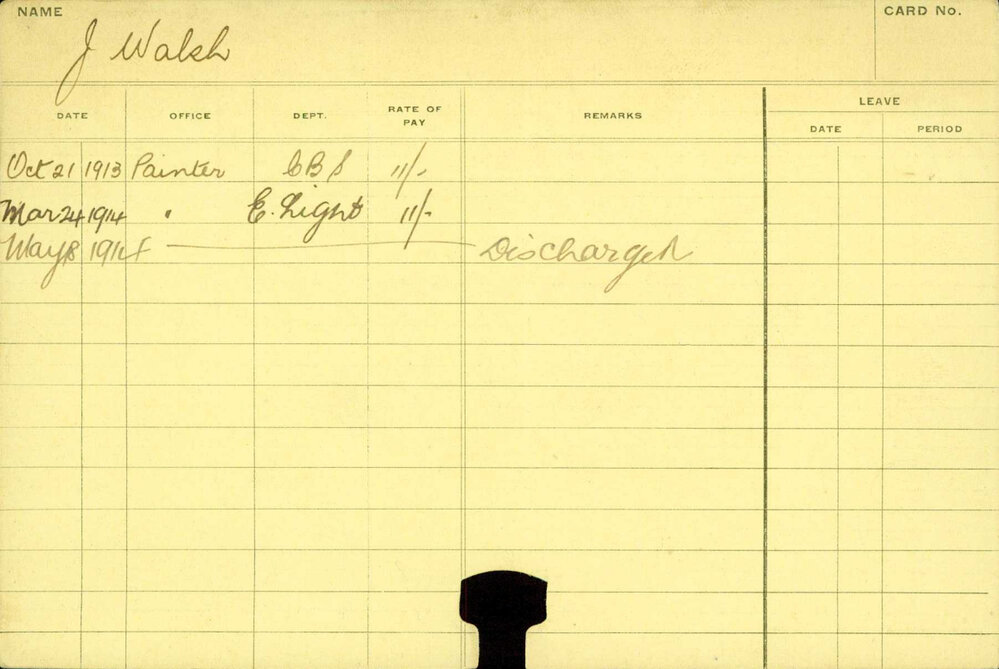 NAME
J Walsh
CARD No.
DATE OFFICE DEPT. RATE OF PAY REMARKS LEAVE
DATE PERIOD
Oct 21 1913 Painter CBS 11/-
Mar 24 1914 " E. Light 11/-
May 8 1914 Discharged